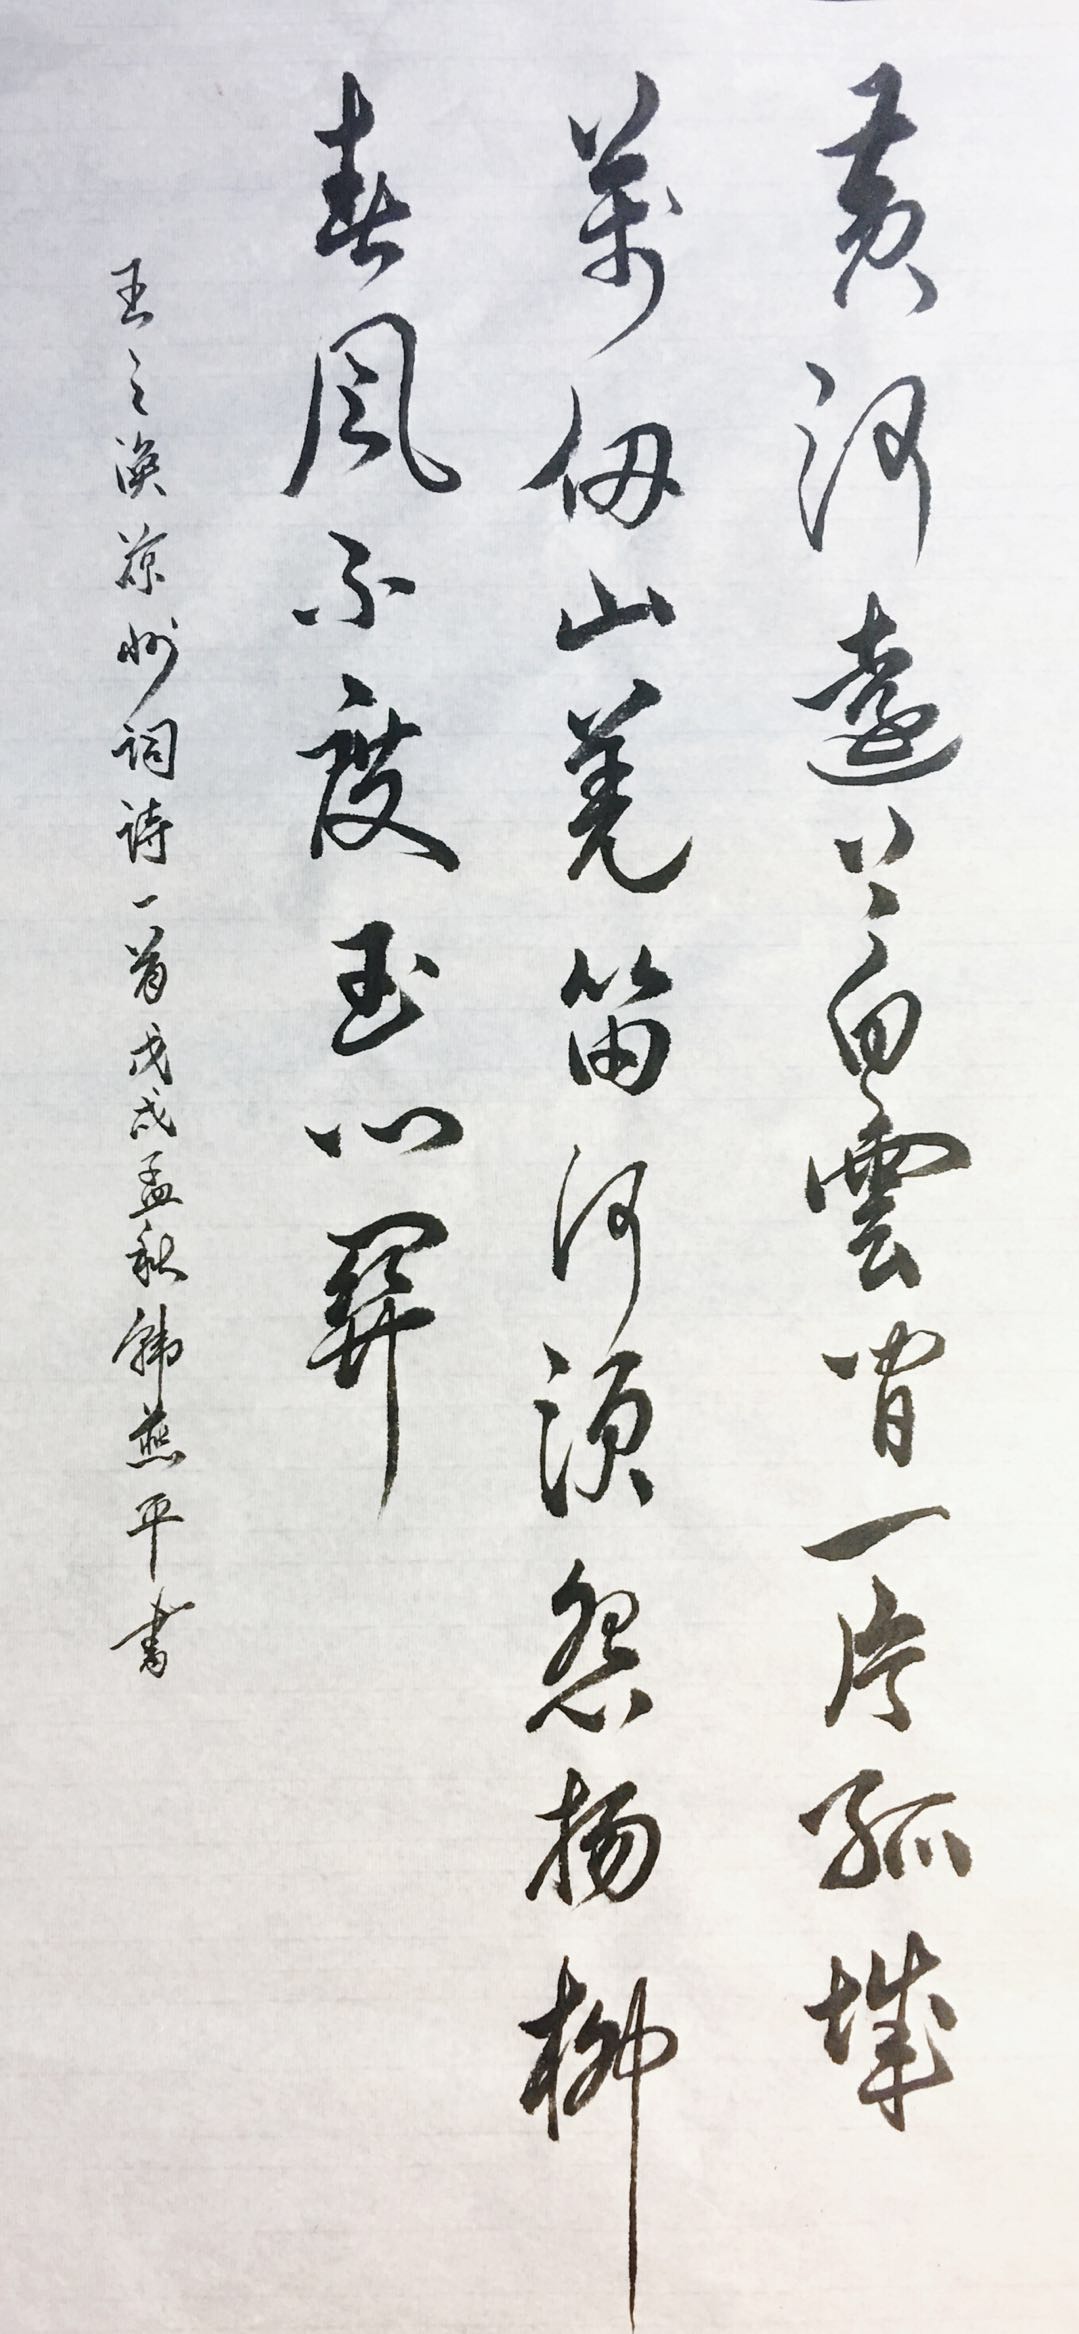 黄河遠上白雲間一片孤城
萬仞山羌笛何須怨楊柳
春風不度玉門關
王之渙凉州詞詩一首戊戌孟秋韓燕平書